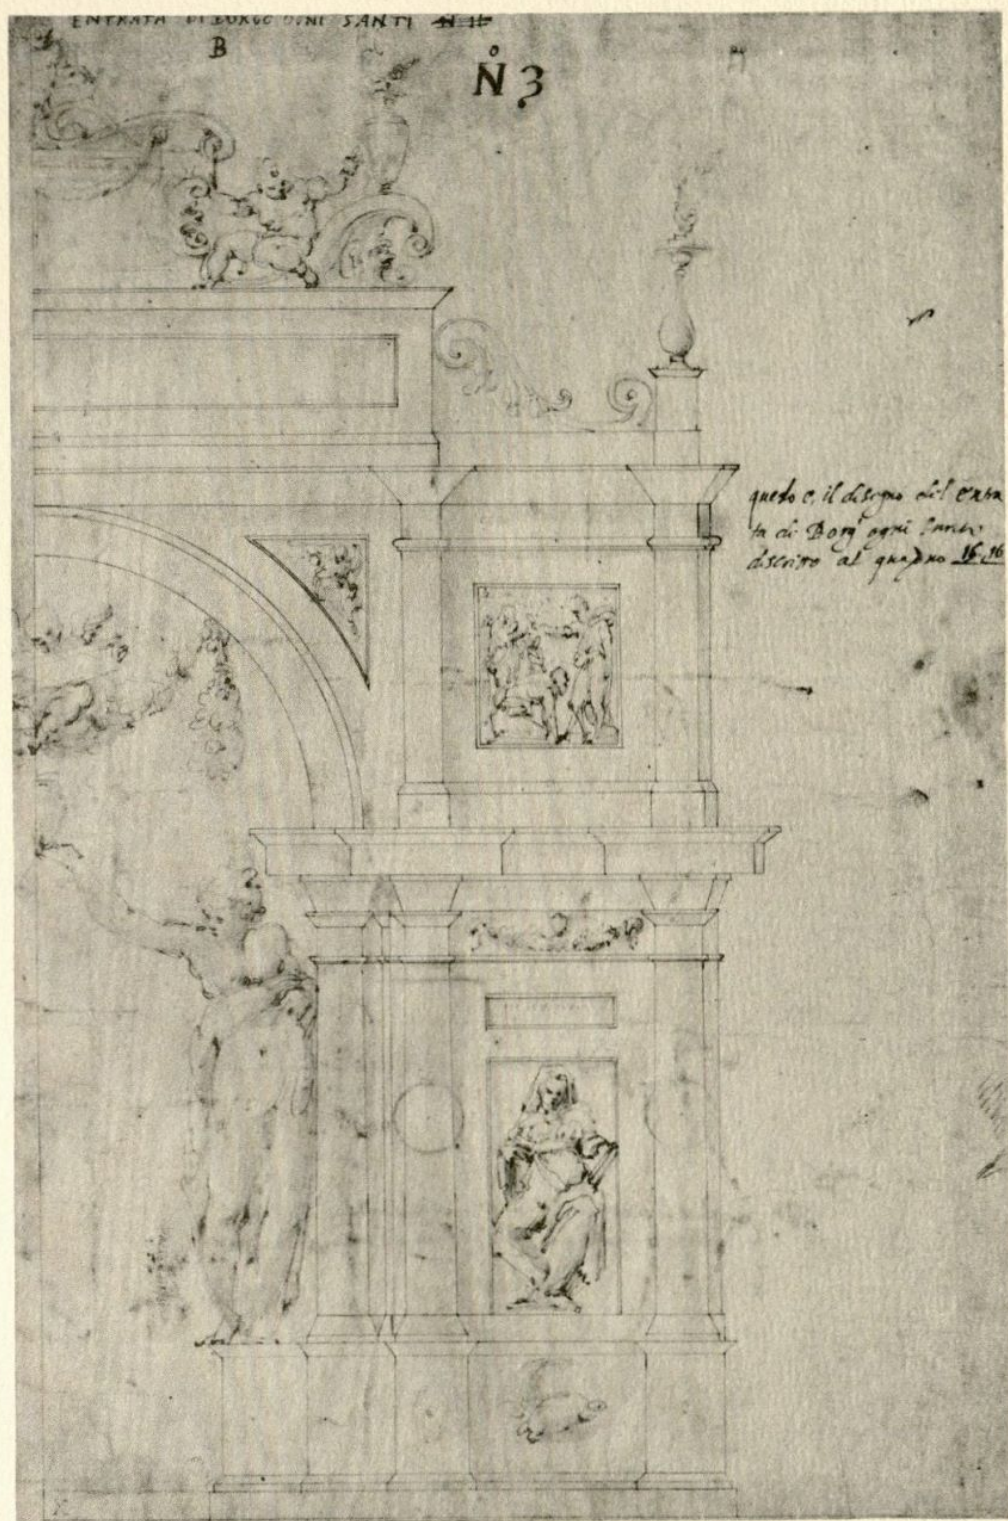 ENTRATA DI BORGO OGNI SANTI N 11
B
N° 3
questo e. il disegno del entra
ta di Borg' ogni santi
discritto al quaderno 16.16
X